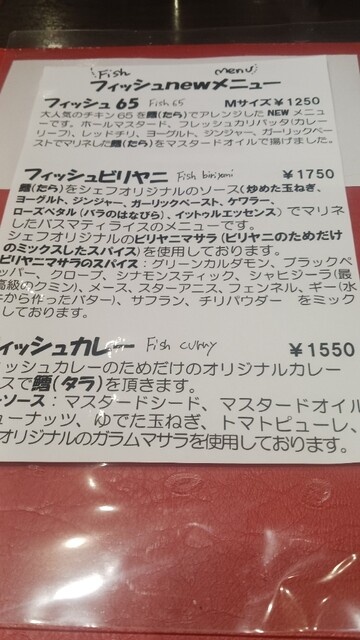 Fish menu
フィッシュnewメニュー
フィッシュ65 Fish 65 Mサイズ￥1250
大人気のチキン65を鱈(たら)でアレンジしたNEWメニュ
ーです。ホールマスタード、フレッシュカリパッタ(カレー
リーフ)、レッドチリ、ヨーグルト、ジンジャー、ガーリックペー
ストでマリネした鱈(たら)をマスタードオイルで揚げました。
フィッシュビリヤニ Fish biriyani ￥1750
鱈(たら)をシェフオリジナルのソース(炒めた玉ねぎ、
ヨーグルト、ジンジャー、ガーリックペースト、ケワラー、
ローズペタル(バラのはなびら)、イットゥルエッセンス）でマリネし
たバスマティライスのメニューです。
シェフオリジナルのビリヤニマサラ(ビリヤニのためだけ
のミックスしたスパイス)を使用しております。
ビリヤニマサラのスパイス：グリーンカルダモン、ブラックペ
ッパー、クローブ、シナモンスティック、シャヒジーラ(最
高級のクミン)、メース、スターアニス、フェンネル、ギー(水
牛から作ったバター)、サフラン、チリパウダー をミック
しております。
ィッシュカレー Fish curry ￥1550
ィッシュカレーのためだけのオリジナルカレー
スで鱈(タラ)を頂きます。
ーソース：マスタードシード、マスタードオイル
ューナッツ、ゆでた玉ねぎ、トマトピューレ、
オリジナルのガラムマサラを使用しております。